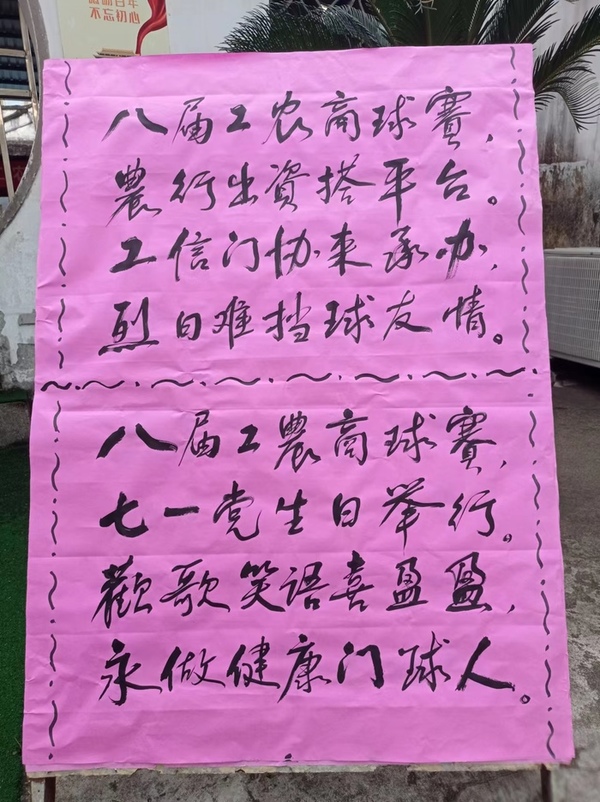 不忘初心
八届工农商球賽，
農行出資搭平台。
工信门协来承办，
烈日难挡球友情。
八届工農商球賽，
七一党生日举行。
歡歌笑语喜盈盈，
永做健康门球人。